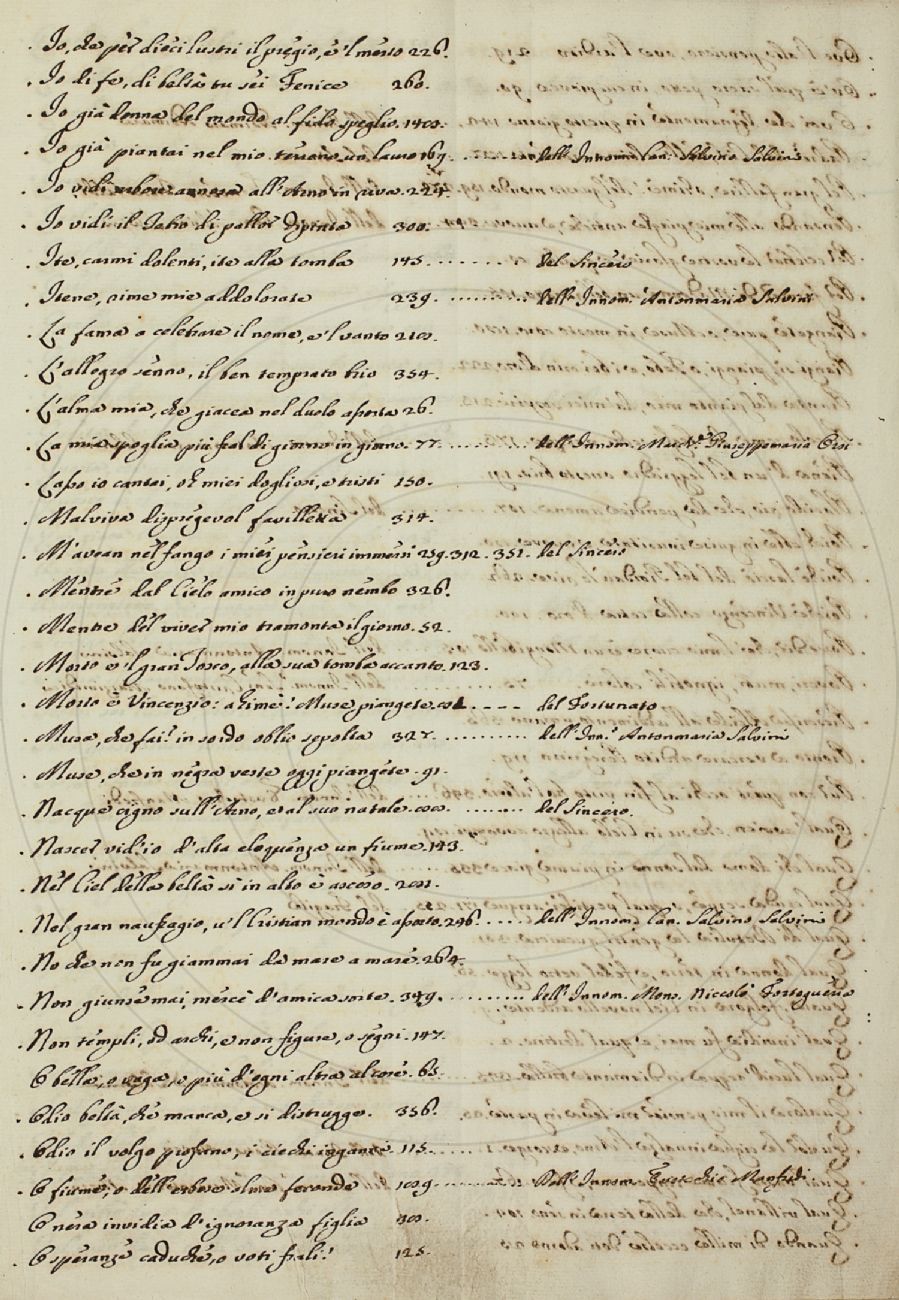 . Io, che per dieci lustri il pregio, e 'l merto 226.
. Io di fe, di beltà tu sei Fenice 260.
. Io già donna del mondo al fido speglio.
. Io già piantai nel mio terreno un lauro 169. dell' Innom. Can. Salvino Salvini
. Io vidi all' Arno in riva. 224.
. Io vidi il di pallor dipinta 300.
. Ite, carmi dolenti, ite alla tomba 145. del Sincero
. Itene, rime mie addolorate 239. dell' Innom. Antonmaria Salvini
. La fama a celebrare il nome, e 'l vanto
. L'allegro senno, il ben temprato brio 354.
. L'alma mia, che giacea nel duolo absorta 26.
. La mia spoglia più fral di giorno in giorno. 77. dell' Innom. March. Giuseppemaria Orsi
. Lasso io cantai, oh miei dogliosi, e tristi 150.
. Malviva dispregevol favilletta 314.
. M'avean nel fango i miei pensieri immersi 259. 312. 351. del Sincero
. Mentre dal Cielo amico in puro nembo 326.
. Mentre del viver mio tramonta il giorno. 52.
. Morto e 'l gran Tosco, alla sua tomba accanto. 123.
. Morto è Vincenzio: ahimè! Muse piangete. del Fortunato
. Musa, che fai? in sordo oblio sepolta 327. dell' Inn. Antonmaria Salvini
. Muse, che in negra veste oggi piangete. 91.
. Nacque cigno sull' Arno, e al suo natale. del Sincero.
. Nascer vid' io d'alta eloquenza un fiume. 143.
. Nel Ciel della beltà sì in alto è asceso.
. Nel gran naufragio, u' 'l Cristian mondo è absorto. 296. dell' Innom. Can. Salvino Salvini
. No che non fu giammai da mare a mare. 264.
. Non giunse mai, mercè d'amica sorte. 349. dell' Innom. Mons. Niccolò Forteguerra
. Non templi, od archi, e non figure, o segni. 147.
. O bella, o vaga, e più d'ogni altra altrove. 65.
. Odio beltà, che manca, e si distrugge. 336.
. Odio il volgo profano, i ciechi inganni 115.
. O fiume, o dell' erbose olive feconde 109. Dell' Innom. Eustachio Manfredi
. O nera invidia d'ignoranza figlia
. O speranze caduche, o voti frali! 125.